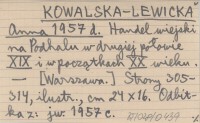 KOWALSKA-LEWICKA
Anna 1957 d. Handel wiejski
na Podhalu w drugiej połowie
XIX i w początkach XX wieku.
— [Warszawa.] Strony 305-
314, ilustr., cm 24 x 16. Odbit-
ka z: jw. 1957 c.